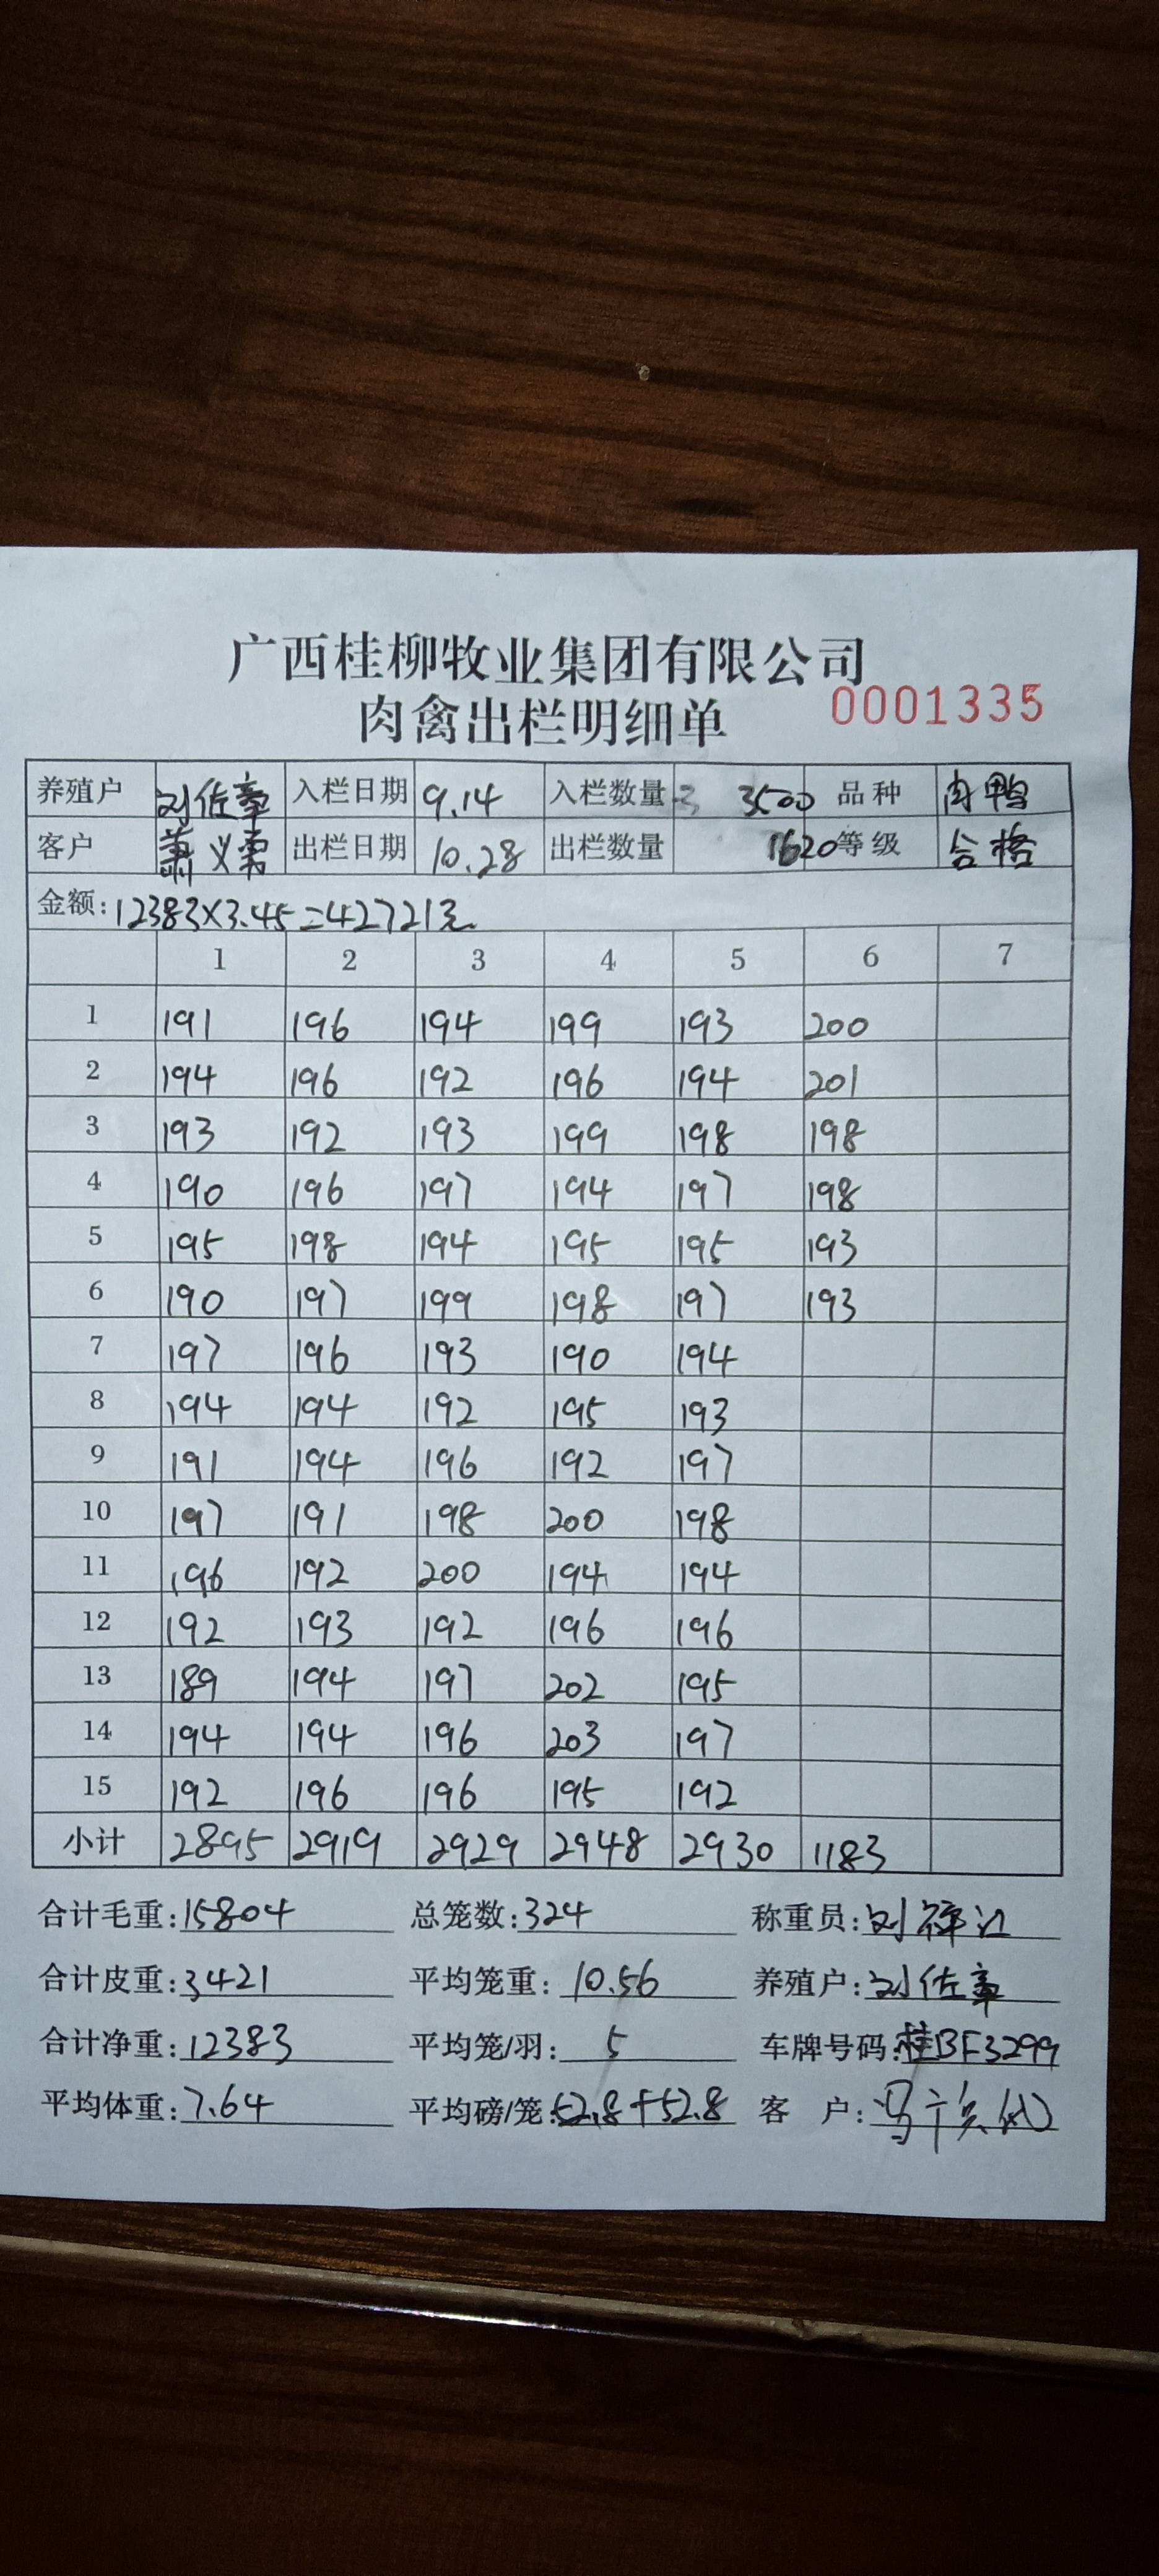 广西桂柳牧业集团有限公司
肉禽出栏明细单 0001335
养殖户 刘佐章 入栏日期 9.14 入栏数量 3500 品种 肉鸭
客户 萧义 出栏日期 10.28 出栏数量 1620 等级 合格
金额: 12383×3.45=42721元
1 2 3 4 5 6 7
1 191 196 194 199 193 200
2 194 196 192 196 194 201
3 193 192 193 199 198 198
4 190 196 197 194 197 198
5 195 198 194 195 195 193
6 190 197 199 198 197 193
7 197 196 193 190 194
8 194 194 192 195 193
9 191 194 196 192 197
10 197 191 198 200 198
11 196 192 200 194 194
12 192 193 192 196 196
13 189 194 197 202 195
14 194 194 196 203 197
15 192 196 196 195 192
小计 2895 2919 2929 2948 2930 1183
合计毛重: 15804 总笼数: 324 称重员: 刘
合计皮重: 3421 平均笼重: 10.56 养殖户: 刘佐章
合计净重: 12383 平均笼/羽: 5 车牌号码: 桂BF3299
平均体重: 7.64 平均磅/笼: 52.8+52.8 客 户: